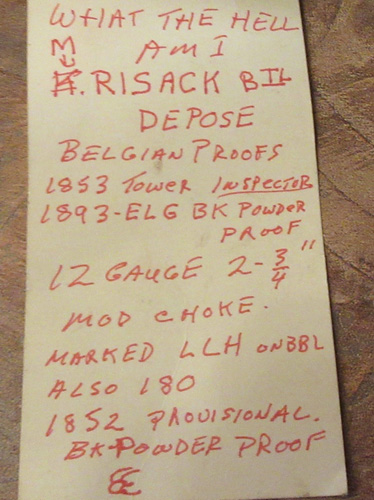 WHAT THE HELL
AM I
M
. RISACK BTL
DEPOSE
BELGIAN PROOFS
1853 TOWER INSPECTOR
1893-ELG BK POWDER
PROOF
12 GAUGE 2-3/4"
MOD CHOKE.
MARKED LLH ON BBL
ALSO 180
1852 PROVISIONAL.
BK POWDER PROOF